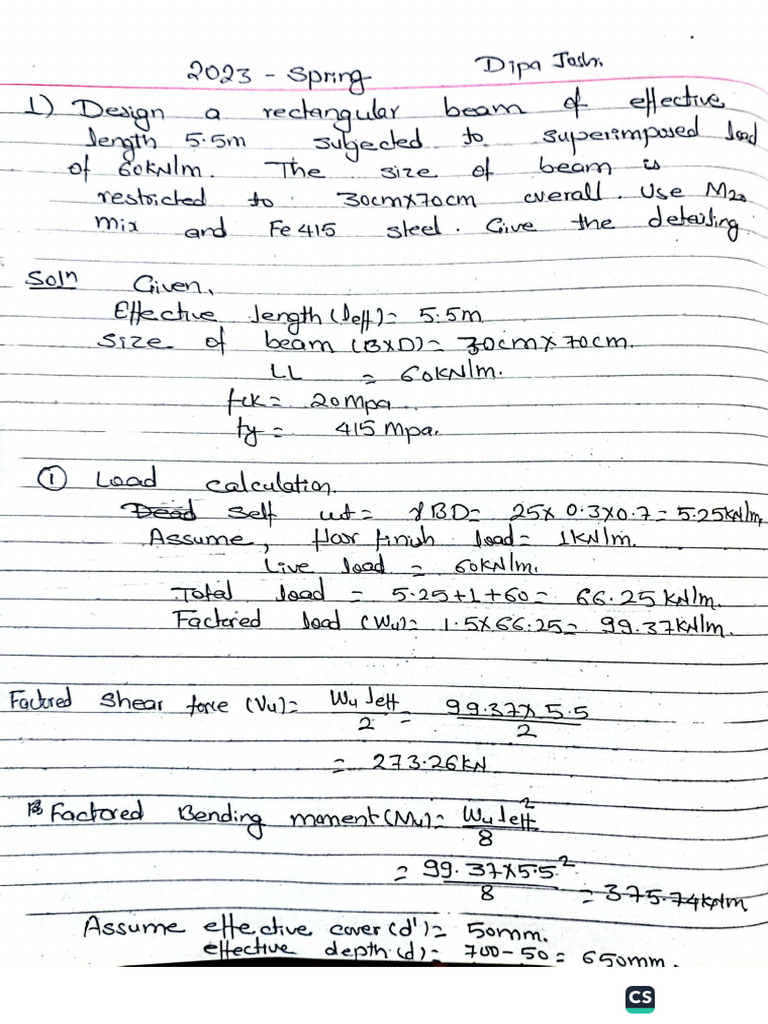 2023 - Spring
Dipa Joshi
1) Design a rectangular beam of effective
length 5.5m subjected to superimposed load
of 60kN/m. The size of beam is
restricted to 30cm×70cm overall. Use M20
mix and Fe 415 steel. Give the detailing
Soln Given,
Effective length (leff) = 5.5m
size of beam (B×D) = 30cm×70cm.
LL = 60kN/m.
fck = 20mpa
ty = 415 mpa.
① Load calculation.
Dead Self wt = γBD = 25× 0.3×0.7 = 5.25kN/m
Assume, floor finish load = 1kN/m.
Live load = 60kN/m.
Total load = 5.25+1+60 = 66.25 kN/m.
Factored load (Wu) = 1.5×66.25 = 99.37kN/m.
Factored Shear force (Vu) = Wu leff / 2 = 99.37×5.5 / 2
= 273.26kN
Factored Bending moment (Mu) = Wu leff² / 8
= 99.37×5.5² / 8 = 375.74kNm
Assume effective cover (d') = 50mm.
effective depth (d) = 700-50 = 650mm.
CS